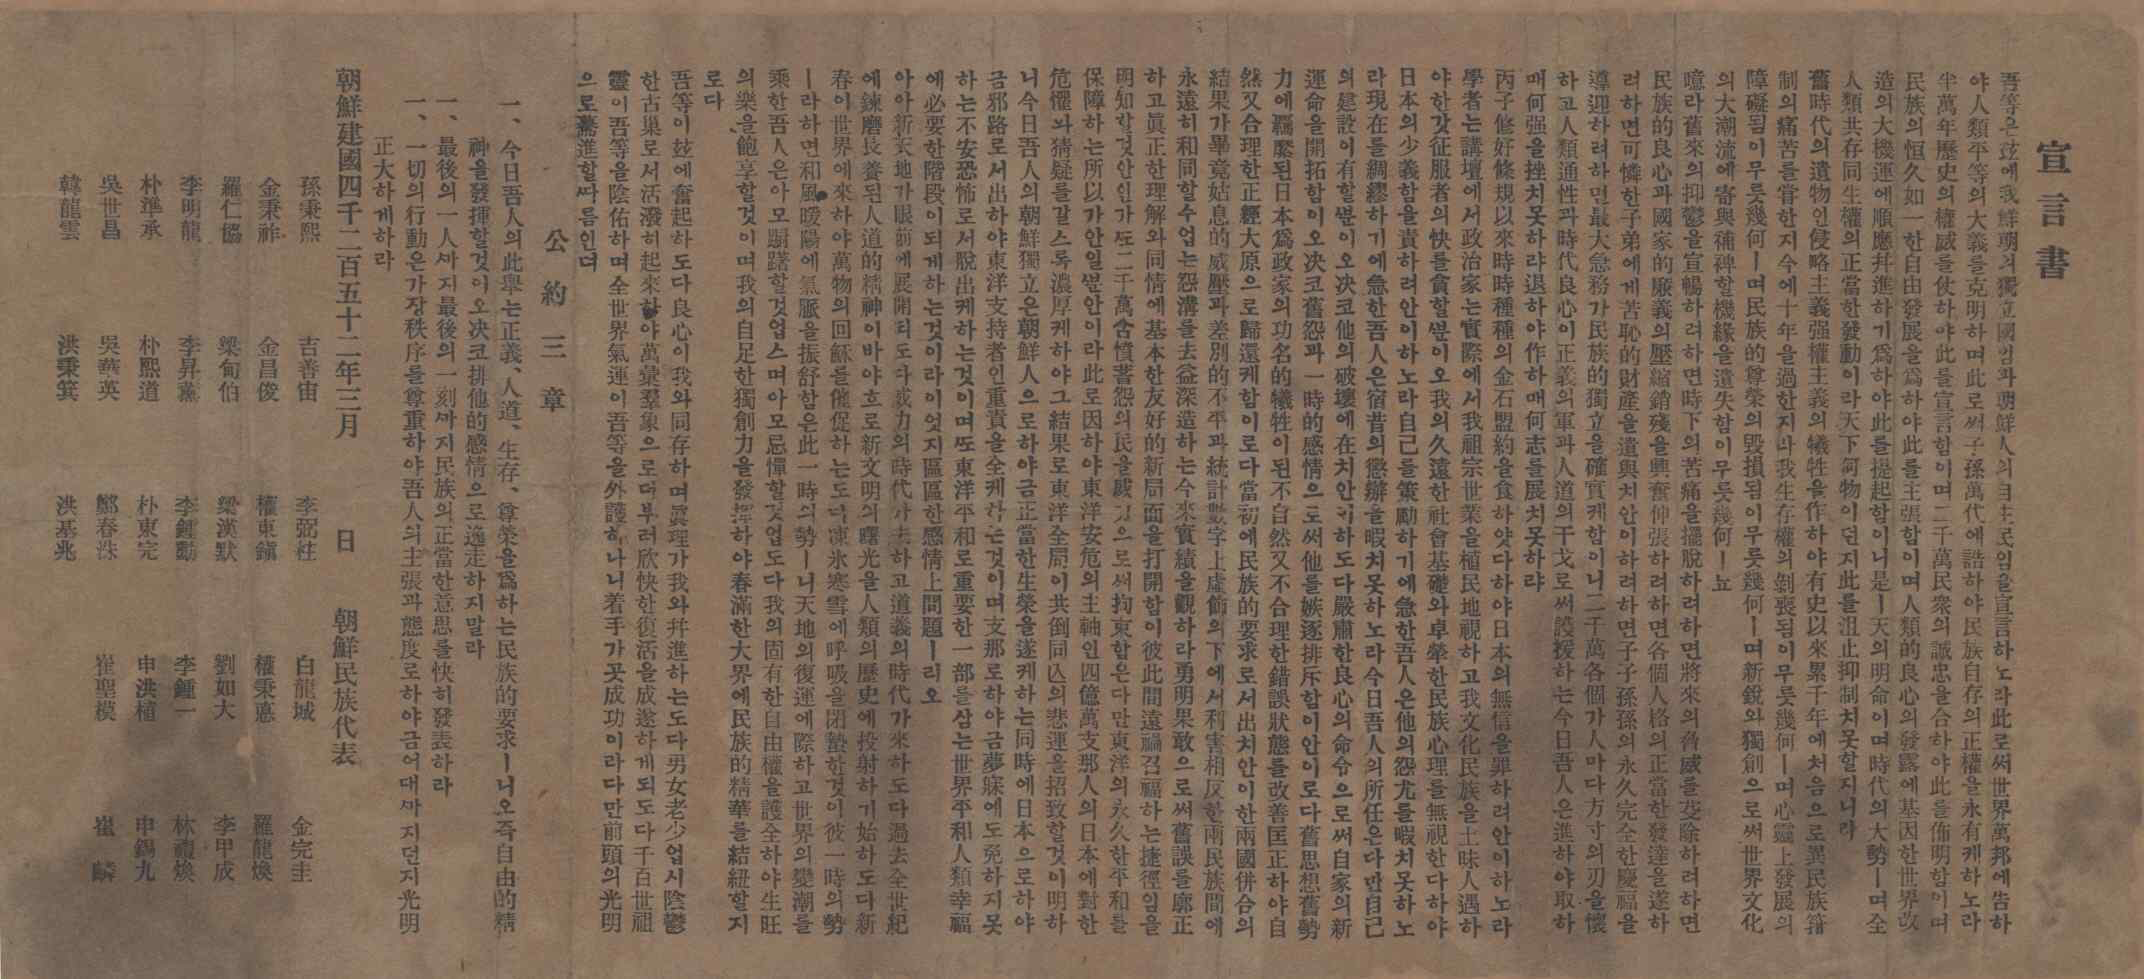 宣言書
吾等은玆에我鮮朝의獨立國임과朝鮮人의自主民임을宣言하노라此로써世界萬邦에告하
야人類平等의大義를克明하며此로써子孫萬代에誥하야民族自存의正權을永有케하노라
半萬年歷史의權威를仗하야此를宣言함이며二千萬民衆의誠忠을合하야此를佈明함이며
民族의恒久如一한自由發展을爲하야此를主張함이며人類的良心의發露에基因한世界改
造의大機運에順應幷進하기爲하야此를提起함이니是ㅣ天의明命이며時代의大勢ㅣ며全
人類共存同生權의正當한發動이라天下何物이던지此를沮止抑制치못할지니라
舊時代의遺物인侵略主義强權主義의犧牲을作하야有史以來累千年에처음으로異民族箝
制의痛苦를嘗한지今에十年을過한지라我生存權의剝喪됨이무릇幾何ㅣ며心靈上發展의
障礙됨이무릇幾何ㅣ며民族的尊榮의毀損됨이무릇幾何ㅣ며新銳와獨創으로써世界文化
의大潮流에寄與補裨할機緣을遺失함이무릇幾何ㅣ뇨
噫라舊來의抑鬱을宣暢하려하면時下의苦痛을擺脫하려하면將來의脅威를芟除하려하면
民族的良心과國家的廉義의壓縮銷殘을興奮伸張하려하면各個人格의正當한發達을遂하
려하면可憐한子弟에게苦恥的財産을遺與치안이하려하면子子孫孫의永久完全한慶福을
導迎하려하면最大急務가民族的獨立을確實케함이니二千萬各個가人마다方寸의刃을懷
하고人類通性과時代良心이正義의軍과人道의干戈로써護援하는今日吾人은進하야取하
매何强을挫치못하랴退하야作하매何志를展치못하랴
丙子修好條規以來時時種種의金石盟約을食하얏다하야日本의無信을罪하려안이하노라
學者는講壇에서政治家는實際에서我祖宗世業을植民地視하고我文化民族을土昧人遇하
야한갓征服者의快를貪할ᄲᅮᆫ이오我의久遠한社會基礎와卓犖한民族心理를無視한다하야
日本의少義함을責하려안이하노라自己를策勵하기에急한吾人은他의怨尤를暇치못하노
라現在를綢繆하기에急한吾人은宿昔의懲辦을暇치못하노라今日吾人의所任은다만自己
의建設이有할ᄲᅮᆫ이오決코他의破壞에在치안이하도다嚴肅한良心의命令으로써自家의新
運命을開拓함이오決코舊怨과一時的感情으로써他를嫉逐排斥함이안이로다舊思想舊勢
力에羈縻된日本爲政家의功名的犧牲이된不自然又不合理한錯誤狀態를改善匡正하야自
然又合理한正經大原으로歸還케함이로다當初에民族的要求로서出치안이한兩國倂合의
結果가畢竟姑息的威壓과差別的不平과統計數字上虛飾의下에서利害相反한兩民族間에
永遠히和同할수업는怨溝를去益深造하는今來實績을觀하라勇明果敢으로써舊誤를廓正
하고眞正한理解와同情에基本한友好的新局面을打開함이彼此間遠禍召福하는捷徑임을
明知할것안인가ᄯᅩ二千萬含憤蓄怨의民을威力으로써拘束함은다만東洋의永久한平和를
保障하는所以가안일ᄲᅮᆫ안이라此로因하야東洋安危의主軸인四億萬支那人의日本에對한
危懼와猜疑를갈스록濃厚케하야그結果로東洋全局이共倒同亡의悲運을招致할것이明하
니今日吾人의朝鮮獨立은朝鮮人으로하야금正當한生榮을遂케하는同時에日本으로하야
금邪路로서出하야東洋支持者인重責을全케하는것이며支那로하야금夢寐에도免하지못
하는不安恐怖로서脫出케하는것이며ᄯᅩ東洋平和로重要한一部를삼는世界平和人類幸福
에必要한階段이되게하는것이라이엇지區區한感情上問題ㅣ리오
아아新天地가眼前에展開되도다威力의時代가去하고道義의時代가來하도다過去全世紀
에鍊磨長養된人道的精神이바야흐로新文明의曙光을人類의歷史에投射하기始하도다新
春이世界에來하야萬物의回蘇를催促하는도다凍氷寒雪에呼吸을閉蟄한것이彼一時의勢
ㅣ라하면和風暖陽에氣脈을振舒함은此一時의勢ㅣ니天地의復運에際하고世界의變潮를
乘한吾人은아모躕躇할것업스며아모忌憚할것업도다我의固有한自由權을護全하야生旺
의樂을飽享할것이며我의自足한獨創力을發揮하야春滿한大界에民族的精華를結紐할지
로다
吾等이玆에奮起하도다良心이我와同存하며眞理가我와幷進하는도다男女老少업시陰鬱
한古巢로서活潑히起來하야萬彙羣象으로더부러欣快한復活을成遂하게되도다千百世祖
靈이吾等을陰佑하며全世界氣運이吾等을外護하나니着手가곳成功이라다만前頭의光明
으로驀進할ᄯᅡ름인뎌
公約三章
一、今日吾人의此擧는正義、人道、生存、尊榮을爲하는民族的要求ㅣ니오즉自由的精
神을發揮할것이오決코排他的感情으로逸走하지말라
一、最後의一人ᄭᅡ지最後의一刻ᄭᅡ지民族의正當한意思를快히發表하라
一、一切의行動은가장秩序를尊重하야吾人의主張과態度로하야금어대ᄭᅡ지던지光明
正大하게하라
朝鮮建國四千二百五十二年三月 日 朝鮮民族代表
孫秉熙 吉善宙 李弼柱 白龍城 金完圭
金秉祚 金昌俊 權東鎭 權秉悳 羅龍煥
羅仁協 梁甸伯 梁漢默 劉如大 李甲成
李明龍 李昇薰 李鍾勳 李鍾一 林禮煥
朴準承 朴熙道 朴東完 申洪植 申錫九
吳世昌 吳華英 鄭春洙 崔聖模 崔麟
韓龍雲 洪秉箕 洪基兆